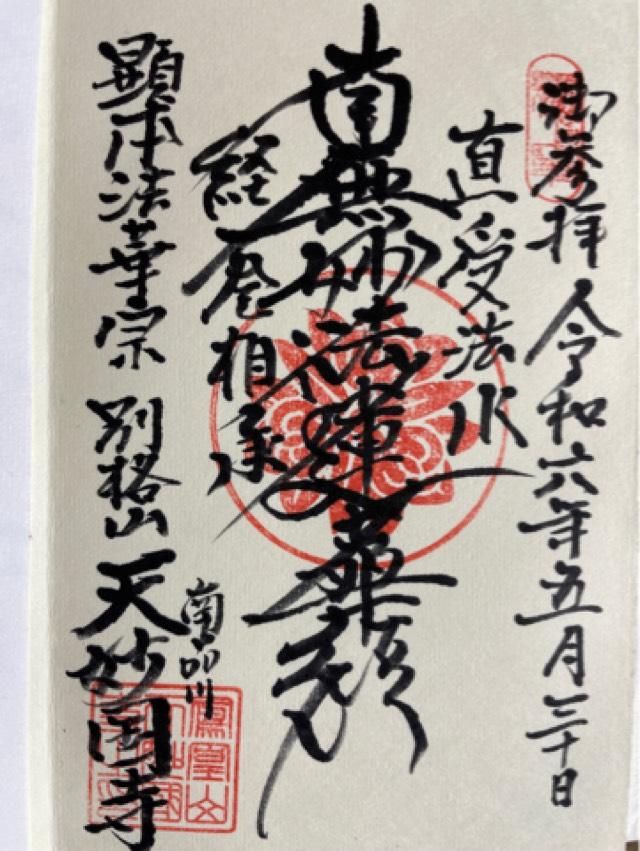 御参拝 令和六年五月三十日
直受法水
南無妙法蓮華経
経巻相承
南品川
顕本法華宗 別格山 天妙国寺
鳳凰山